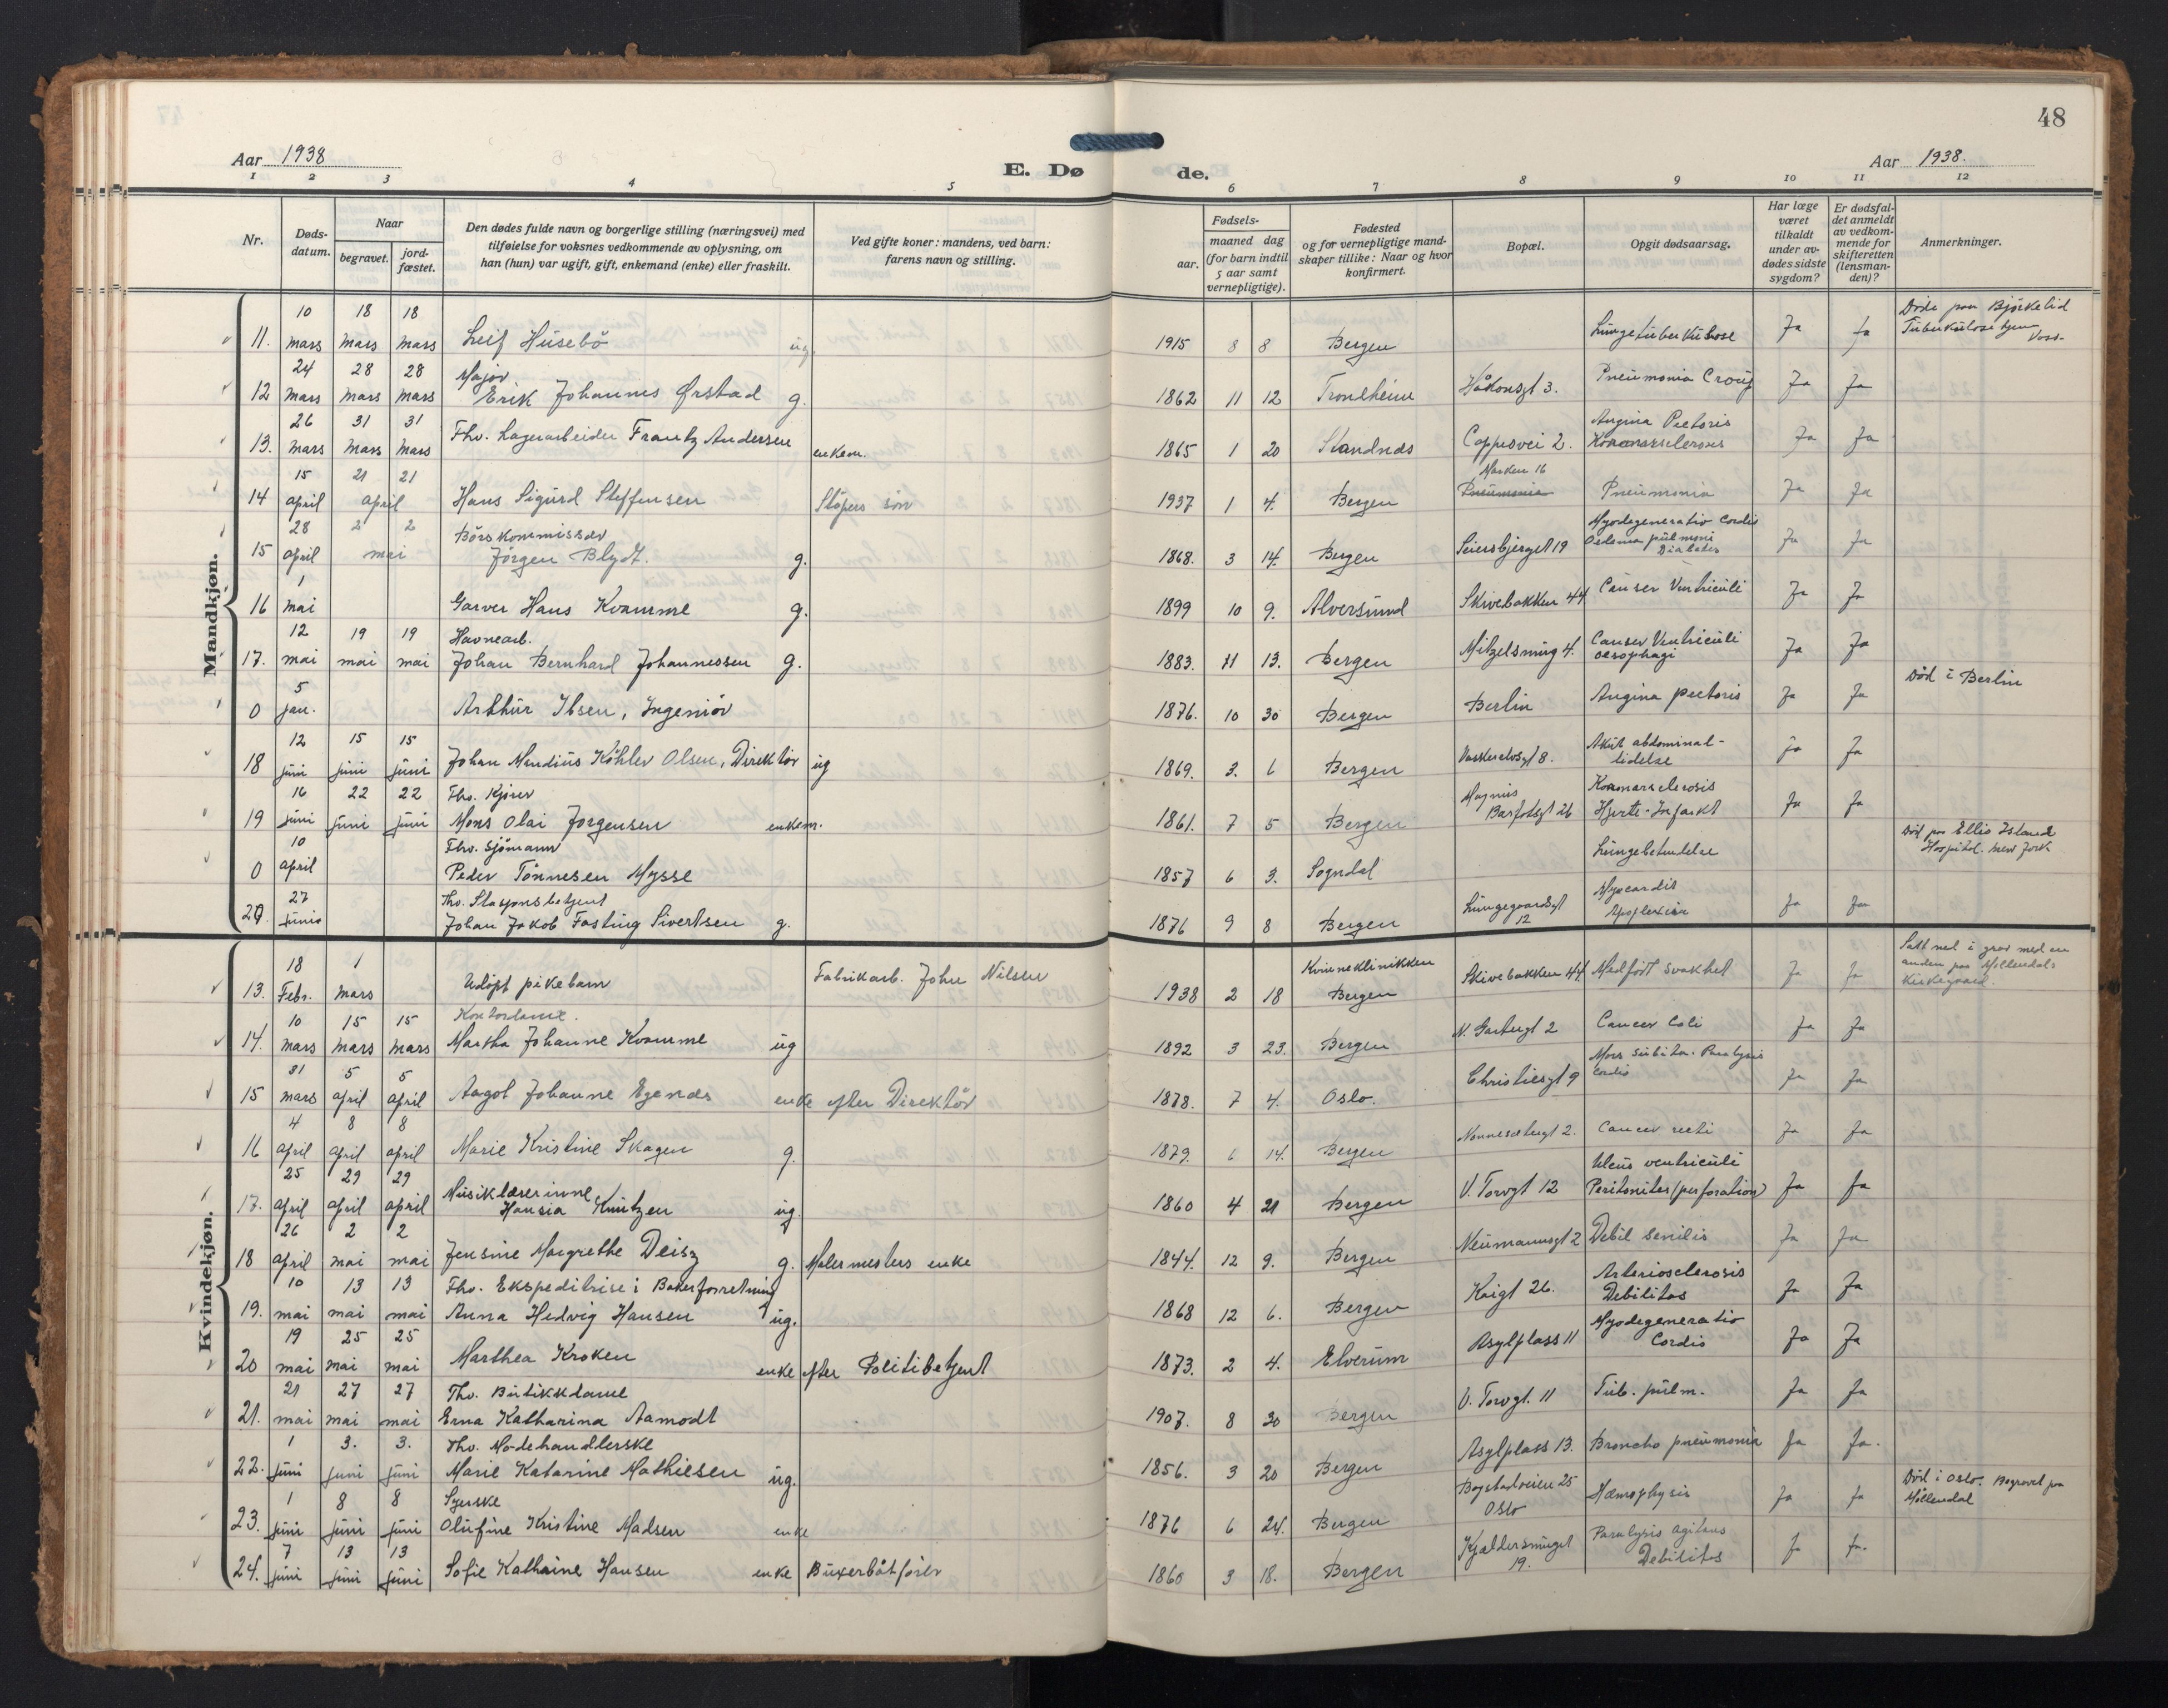 48
Aar 1938
E. Dø de.
Aar 1938.
1 2 3 4 5 6 7 8 9 10 11 12
Nr.
Døds-datum.
Naar
begravet.
jord-fæstet.
Den dødes fulde navn og borgerlige stilling (næringsvei) med
tilføielse for voksnes vedkommende av oplysning, om
han (hun) var ugift, gift, enkemand (enke) eller fraskilt.
Ved gifte koner: mandens, ved barn:
farens navn og stilling.
Fødsels-
aar.
maaned dag
(for barn indtil
5 aar samt
vernepligtige).
Fødested
og for vernepligtige mand-
skaper tillike: Naar og hvor
konfirmert.
Bopæl.
Opgit dødsaarsag.
Har læge
været
tilkaldt
under av-
dødes sidste
sygdom?
Er dødsfal-
det anmeldt
av vedkom-
mende for
skifteretten
(lensman-
den)?
Anmerkninger.
Mandkjøn.
11. 10 mars 18 mars 18 mars Leif Husebö ug. 1915 8 8 Bergen Lungetuberkulose Ja Ja Döde paa Bjørkelid Tuberkulosehjem Voss.
12 24 mars 28 mars 28 mars Major Erik Johannes Ørstad g. 1862 11 12 Trondheim Håkonsgt 3. Pneumonia Croup Ja Ja
13. 26 mars 31 mars 31 mars Fhv. Lagerarbeider Frantz Andersen enkem. 1865 1 20 Strandnes Coppusvei 2. Angina Pectoris Ja Ja
14 15 april 21 21 april Hans Sigurd Steffensen Stöpers sön 1937 1 4. Bergen Marken 16 Pneumonia Pneumonia Ja Ja
15 28 april 2 2 mai Börskommissær Jörgen Blydt. g. 1868. 3 14. Bergen Seiersbjerget 19 Myodegeneratio Cordis Oedema pulmoni Diabetes Ja Ja
16 1 mai Garver Hans Kvamme g. 1899 10 9. Alversund Skivebakken 44 Cancer Ventriculi Ja Ja
17. 12 mai 19 mai 19 mai Havnearb. Johan Bernhard Johannessen g. 1883. 11 13. Bergen Mitzelsmug 4. Cancer Ventriculi oesophagi Ja Ja
0 5 jan. Arthur Ibsen, Ingeniör 1876. 10 30 Bergen Berlin Angina pectoris Ja Ja Död i Berlin
18 12 juni 15 juni 15 juni Johan Mandius Köhler Olsen, Direktör ug 1869. 3. 6 Bergen Vaskerelvsgt 8. Akut abdominal-lidelse Ja Ja
19 16 juni 22 juni 22 juni Fhv. Kjörer Mons Olai Jorgensen enkem. 1861. 7 5 Bergen Magnus Barfotsgt 26 Koronarsclerosis Hjerte-Infarkt Ja Ja
0 10 april Fhv. Sjömann Peder Tönnesen Mysse 1857 6 3. Sogndal Lungebetendelse Död paa Ellis Island Hospital. New York
20. 27 juni Fhv. Stasjonsbetjent Johan Jakob Fasting Sivertsen g. 1876 9 8 Bergen Lungegaardsgt 12 Myocardit Apoplexia Ja Ja
Kvindekjøn.
13. 18 Febr. 1 mars Udöpt pikebarn Fabrikarb. John Nilsen 1938 2 18 Kvinneklinikken Bergen Skivebakken 44 Medfödt svakhet Ja Ja Satt ned i grav med en anden paa Möllendals Kirkegaard.
14. 10 mars 15 mars 15 mars Kontordame. Martha Johanne Kvamme ug 1892 3 23. Bergen N. Gartngt 2 Cancer Coli Ja Ja
15 31 mars 5 april 5 april Aagot Johanne Egenæs enke efter Direktör 1878. 7 4. Oslo. Christiesgt 9 Mors subita. Paralysis Cordis Ja Ja
16 4 april 8 april 8 april Marie Kristine Skagen g. 1879. 6 14. Bergen Nonnesætergt 2. Cancer recti Ja Ja
17. 25 april 29 april 29 april Musiklærerinne Hansia Knutzen ug. 1860 4 21 Bergen V. Torvgt 12 Ulcus ventriculi Peritonites (perforation) Ja Ja
18 26 april 2 mai 2 mai Jensine Margrethe Deisz g. Malermesters enke 1844. 12 9. Bergen Neumannsgt 2 Debil senilis Ja Ja
19. 10 mai 13 mai 13 mai Fhv. Ekspeditrise i Bakerforretning Anna Hedvig Hansen ug. 1868 12 6. Bergen Kaigt 26. Arteriosclerosis Debilitas Ja Ja
20 19 mai 25 mai 25 mai Marthea Kroken enke efter Politibetjent 1873. 2 4. Elverum Asylplass 11 Myodegeneratio Cordis Ja Ja
21. 21 mai 27 mai 27 mai Fhv. Butikkdame Erna Katharina Aamodt 1907. 8 30 Bergen V. Torvgt. 11 Tub. pulm. Ja Ja
22. 1 juni 3. juni 3. juni Fhv. Motehandlerske Marie Katarine Mathiesen ug. 1856. 3 20 Bergen Asylplass 13. Broncho pneumonia Ja Ja.
23. 1 juni 8 juni 8 juni Syerske Olufine Kristine Madsen enke 1876 6 24. Bergen Bogstadveien 25 Oslo Hæmophysis Ja Ja Död i Oslo. Begravet paa Möllendal
24. 7 juni 13 juni 13 juni Sofie Kathrine Hansen enke Buxerbåtförer 1860 3 18. Bergen Kjeldersmuget 19. Paralysis agitans Debilitas Ja Ja.